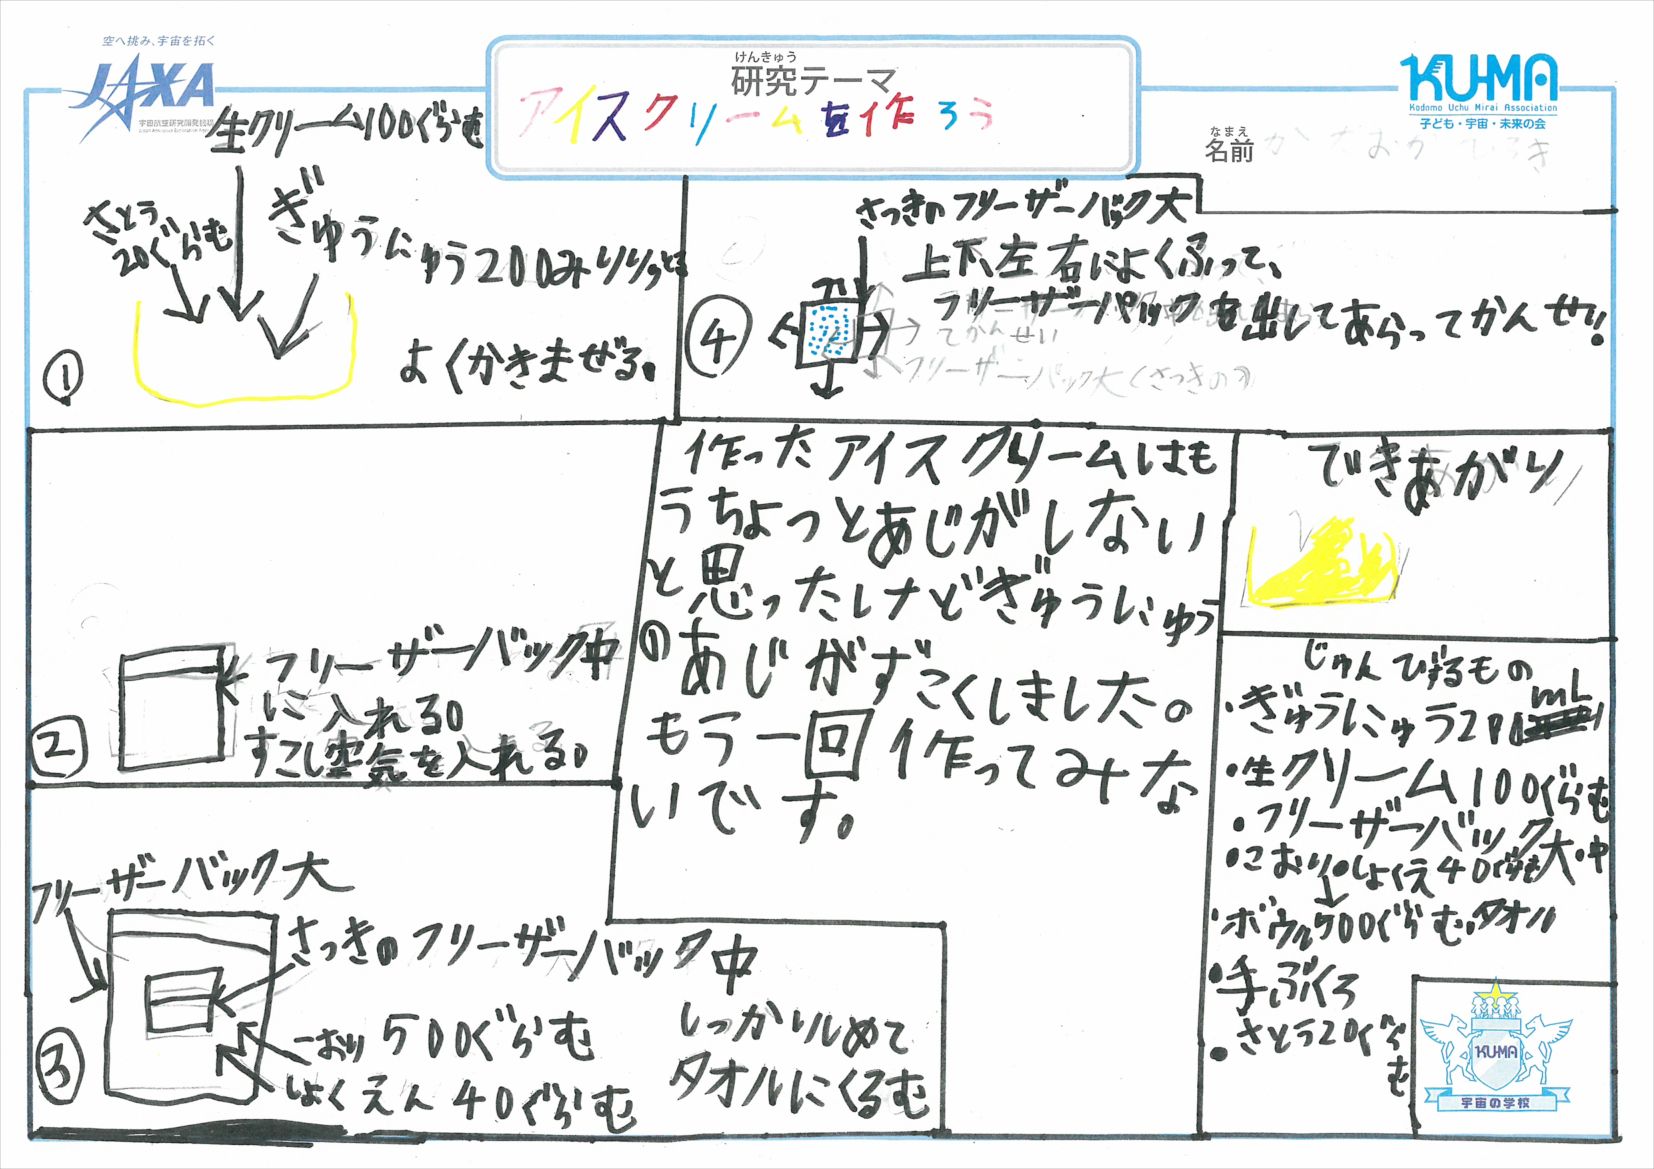 空へ挑み、宇宙を拓く
JAXA
宇宙航空研究開発機構
けんきゅう
研究テーマ
アイスクリームを作ろう
KU-MA
Kodomo Uchu Mirai Association
子ども・宇宙・未来の会
なまえ
名前
生クリーム100ぐらむ
さとう
20ぐらむ
ぎゅうにゅう200みりりっとる
①
よくかきまぜる。
②
フリーザーバック中
に入れる。
すこし空気を入れる。
③
フリーザーバック大
さっきのフリーザーバック中
こおり500ぐらむ
しょくえん40ぐらむ
しっかりしめて
タオルにくるむ
④
さっきのフリーザーバック大
上下、左右によくふって、
フリーザーバックを出してあらってかんせい!
てかんせい
フリーザーバック大(さっきの)
作ったアイスクリームはも
うちょっとあじがしない
と思ったけどぎゅうにゅう
のあじがすごくしました。
もう一回作ってみた
いです。
できあがり
じゅんびするもの
・ぎゅうにゅう200mL
・生クリーム100ぐらむ
・フリーザーバック大・中
・こおり・しょくえん40ぐらむ
ボウル500ぐらむ・タオル
・手ぶくろ
・さとう20ぐらむ
KU-MA
宇宙の学校